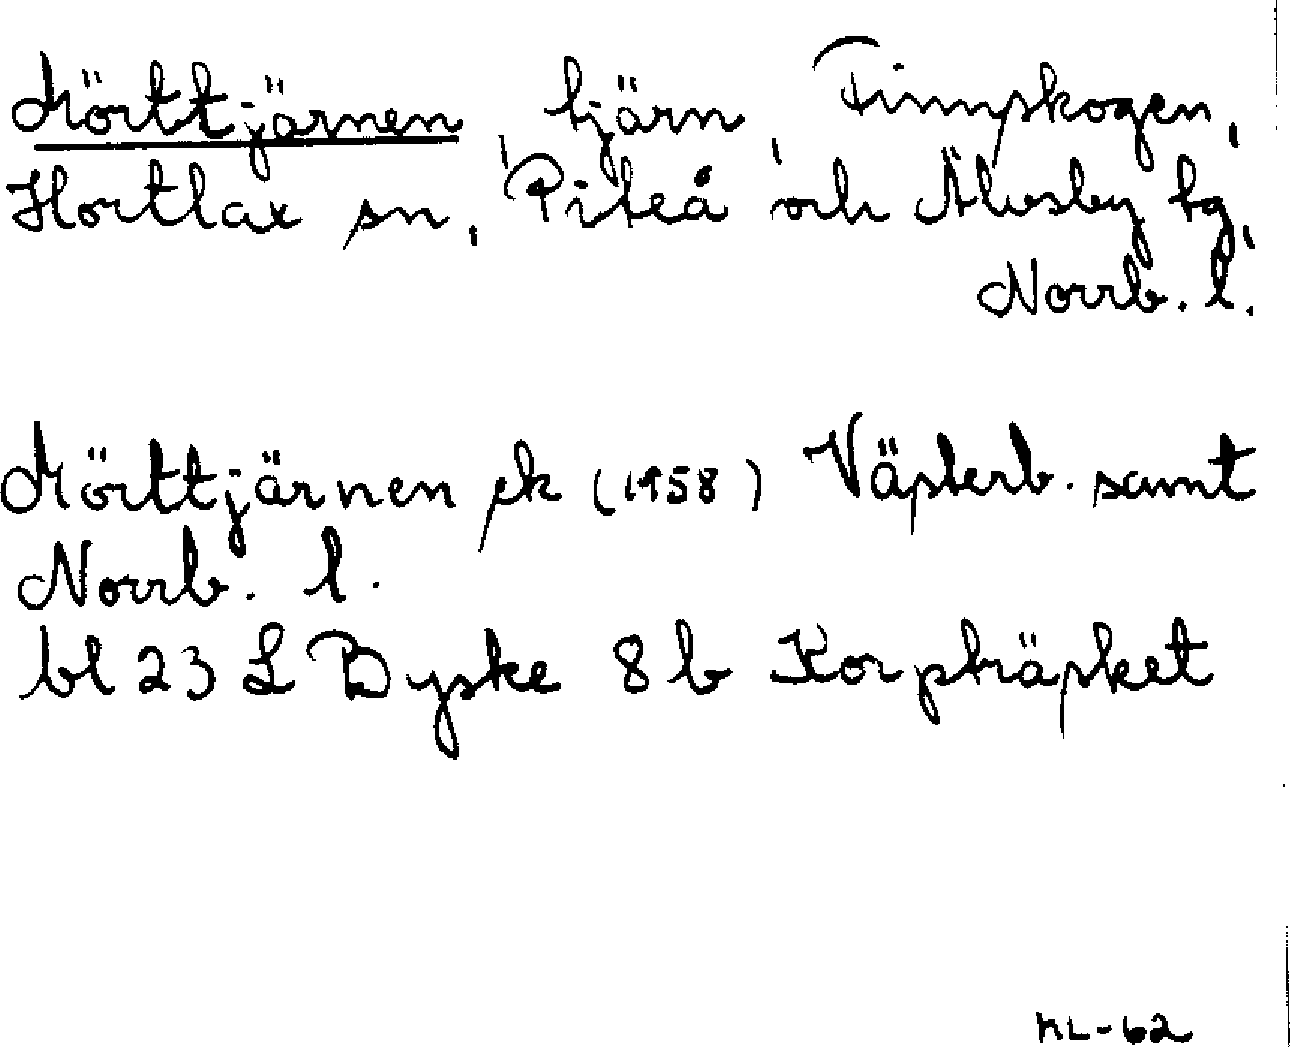 Mörttjärnen, tjärn, Finnskogen,
Hortlax sn, Piteå och Älvsby tg,
Norrb. l.
Mörttjärnen ek (1958) Västerb. samt
Norrb. l.
bl 23 L Byske 8 b Korpträsket
KL-62